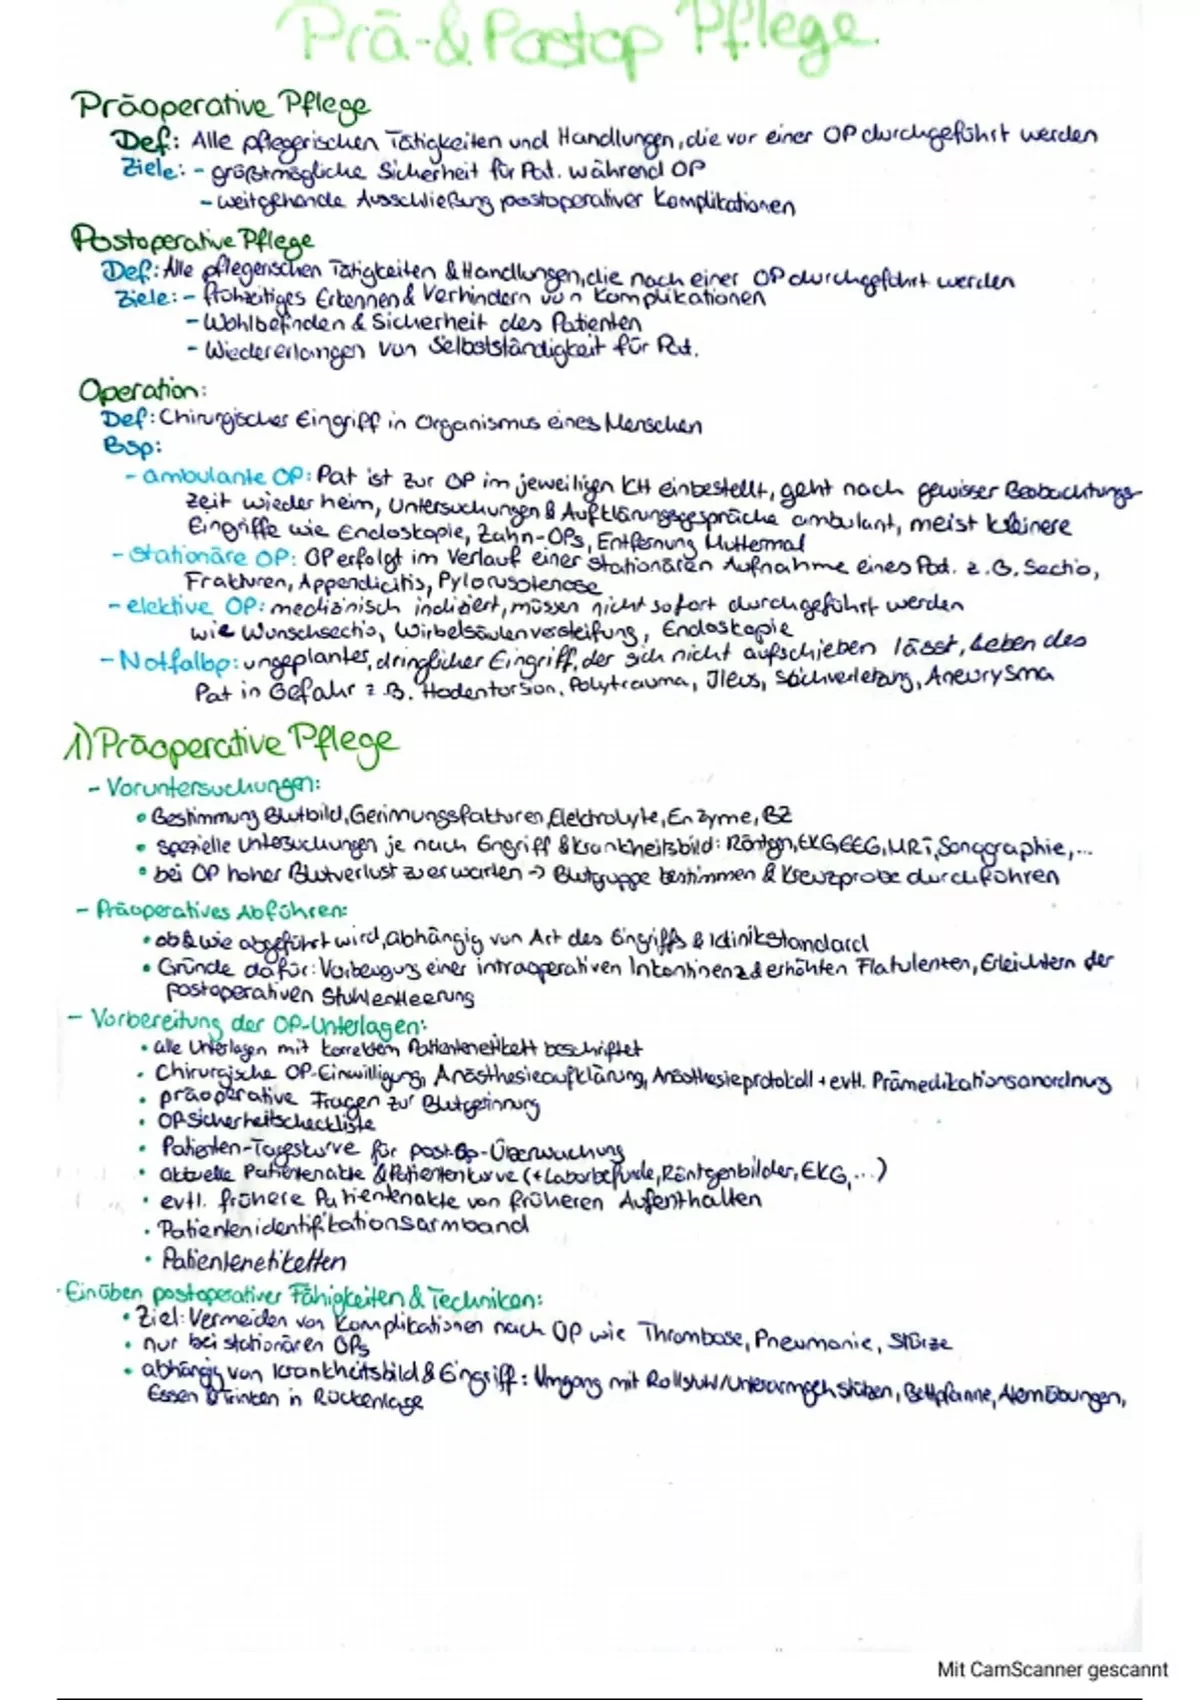 Prä-&Postop Pflege
Präoperative Pflege
Def.: Alle pflegerischen Tätigkeiten und Handlungen, die vor einer OP durchgeführt werden
Ziele: - größtmögliche Sicherheit für Pat. während OP
- weitgehende Ausschließung postoperativer Komplikationen
Postoperative Pflege
Def.: Alle pflegerischen Tätigkeiten & Handlungen, die nach einer OP durchgeführt werden
Ziele: - frühzeitiges Erkennen & Verhindern von Komplikationen
- Wohlbefinden & Sicherheit des Patienten
- Wiedererlangen von Selbstständigkeit für Pat.
Operation:
Def: Chirurgischer Eingriff in Organismus eines Menschen
Bsp:
- ambulante OP: Pat ist zur OP im jeweiligen KH einbestellt, geht nach gewisser Beobachtungs-
zeit wieder heim, Untersuchungen & Aufklärungsgespräche ambulant, meist kleinere
Eingriffe wie Endoskopie, Zahn-OPs, Entfernung Muttermal
- Stationäre OP: OP erfolgt im Verlauf einer stationären Aufnahme eines Pat. z.B. Sectio,
Frakturen, Appendicitis, Pylorusstenose
- elektive OP: medizinisch indiziert, müssen nicht sofort durchgeführt werden
wie Wunschsectio, Wirbelsäulenversteifung, Endoskopie
- Notfallop: ungeplanter, dringlicher Eingriff, der sich nicht aufschieben lässt, Leben des
Pat in Gefahr z.B. Hodentorsion, Polytrauma, Ileus, Stichverletzung, Aneurysma
1) Präoperative Pflege
- Voruntersuchungen:
• Bestimmung Blutbild, Gerinnungsfaktoren, Elektrolyte, Enzyme, BZ
• spezielle Untersuchungen je nach Eingriff & Krankheitsbild: Röntgen, EKG, EEG, MRT, Sonographie, ...
• bei OP hoher Blutverlust zu erwarten -> Blutgruppe bestimmen & Kreuzprobe durchführen
- Präoperatives Abführen:
• ob & wie abgeführt wird, abhängig von Art des Eingriffs & Klinikstandard
• Gründe dafür: Vorbeugung einer intraoperativen Inkontinenz & erhöhten Flatulenten, Erleichtern der
postoperativen Stuhlentleerung
- Vorbereitung der OP-Unterlagen:
• alle Unterlagen mit korrektem Patientenetikett beschriftet
• Chirurgische OP-Einwilligung, Anästhesieaufklärung, Anästhesieprotokoll + evtl. Prämedikationsanordnung
• präoperative Fragen zur Blutgerinnung
• OP Sicherheitscheckliste
• Patienten-Tageskurve für post-Op-Überwachung
• aktuelle Patientenakte & Patientenkurve (+ Laborbefunde, Röntgenbilder, EKG, ...)
• evtl. frühere Patientenakte von früheren Aufenthalten
• Patientenidentifikationsarmband
• Patientenetiketten
· Einüben postoperativer Fähigkeiten & Techniken:
• Ziel: Vermeiden von Komplikationen nach OP wie Thrombose, Pneumonie, Stürze
• nur bei stationären OPs
• abhängig von Krankheitsbild & Eingriff: Umgang mit Rollstuhl/Unterarmgehstützen, Bettpfanne, Atemübungen,
Essen & Trinken in Rückenlage
Mit CamScanner gescannt